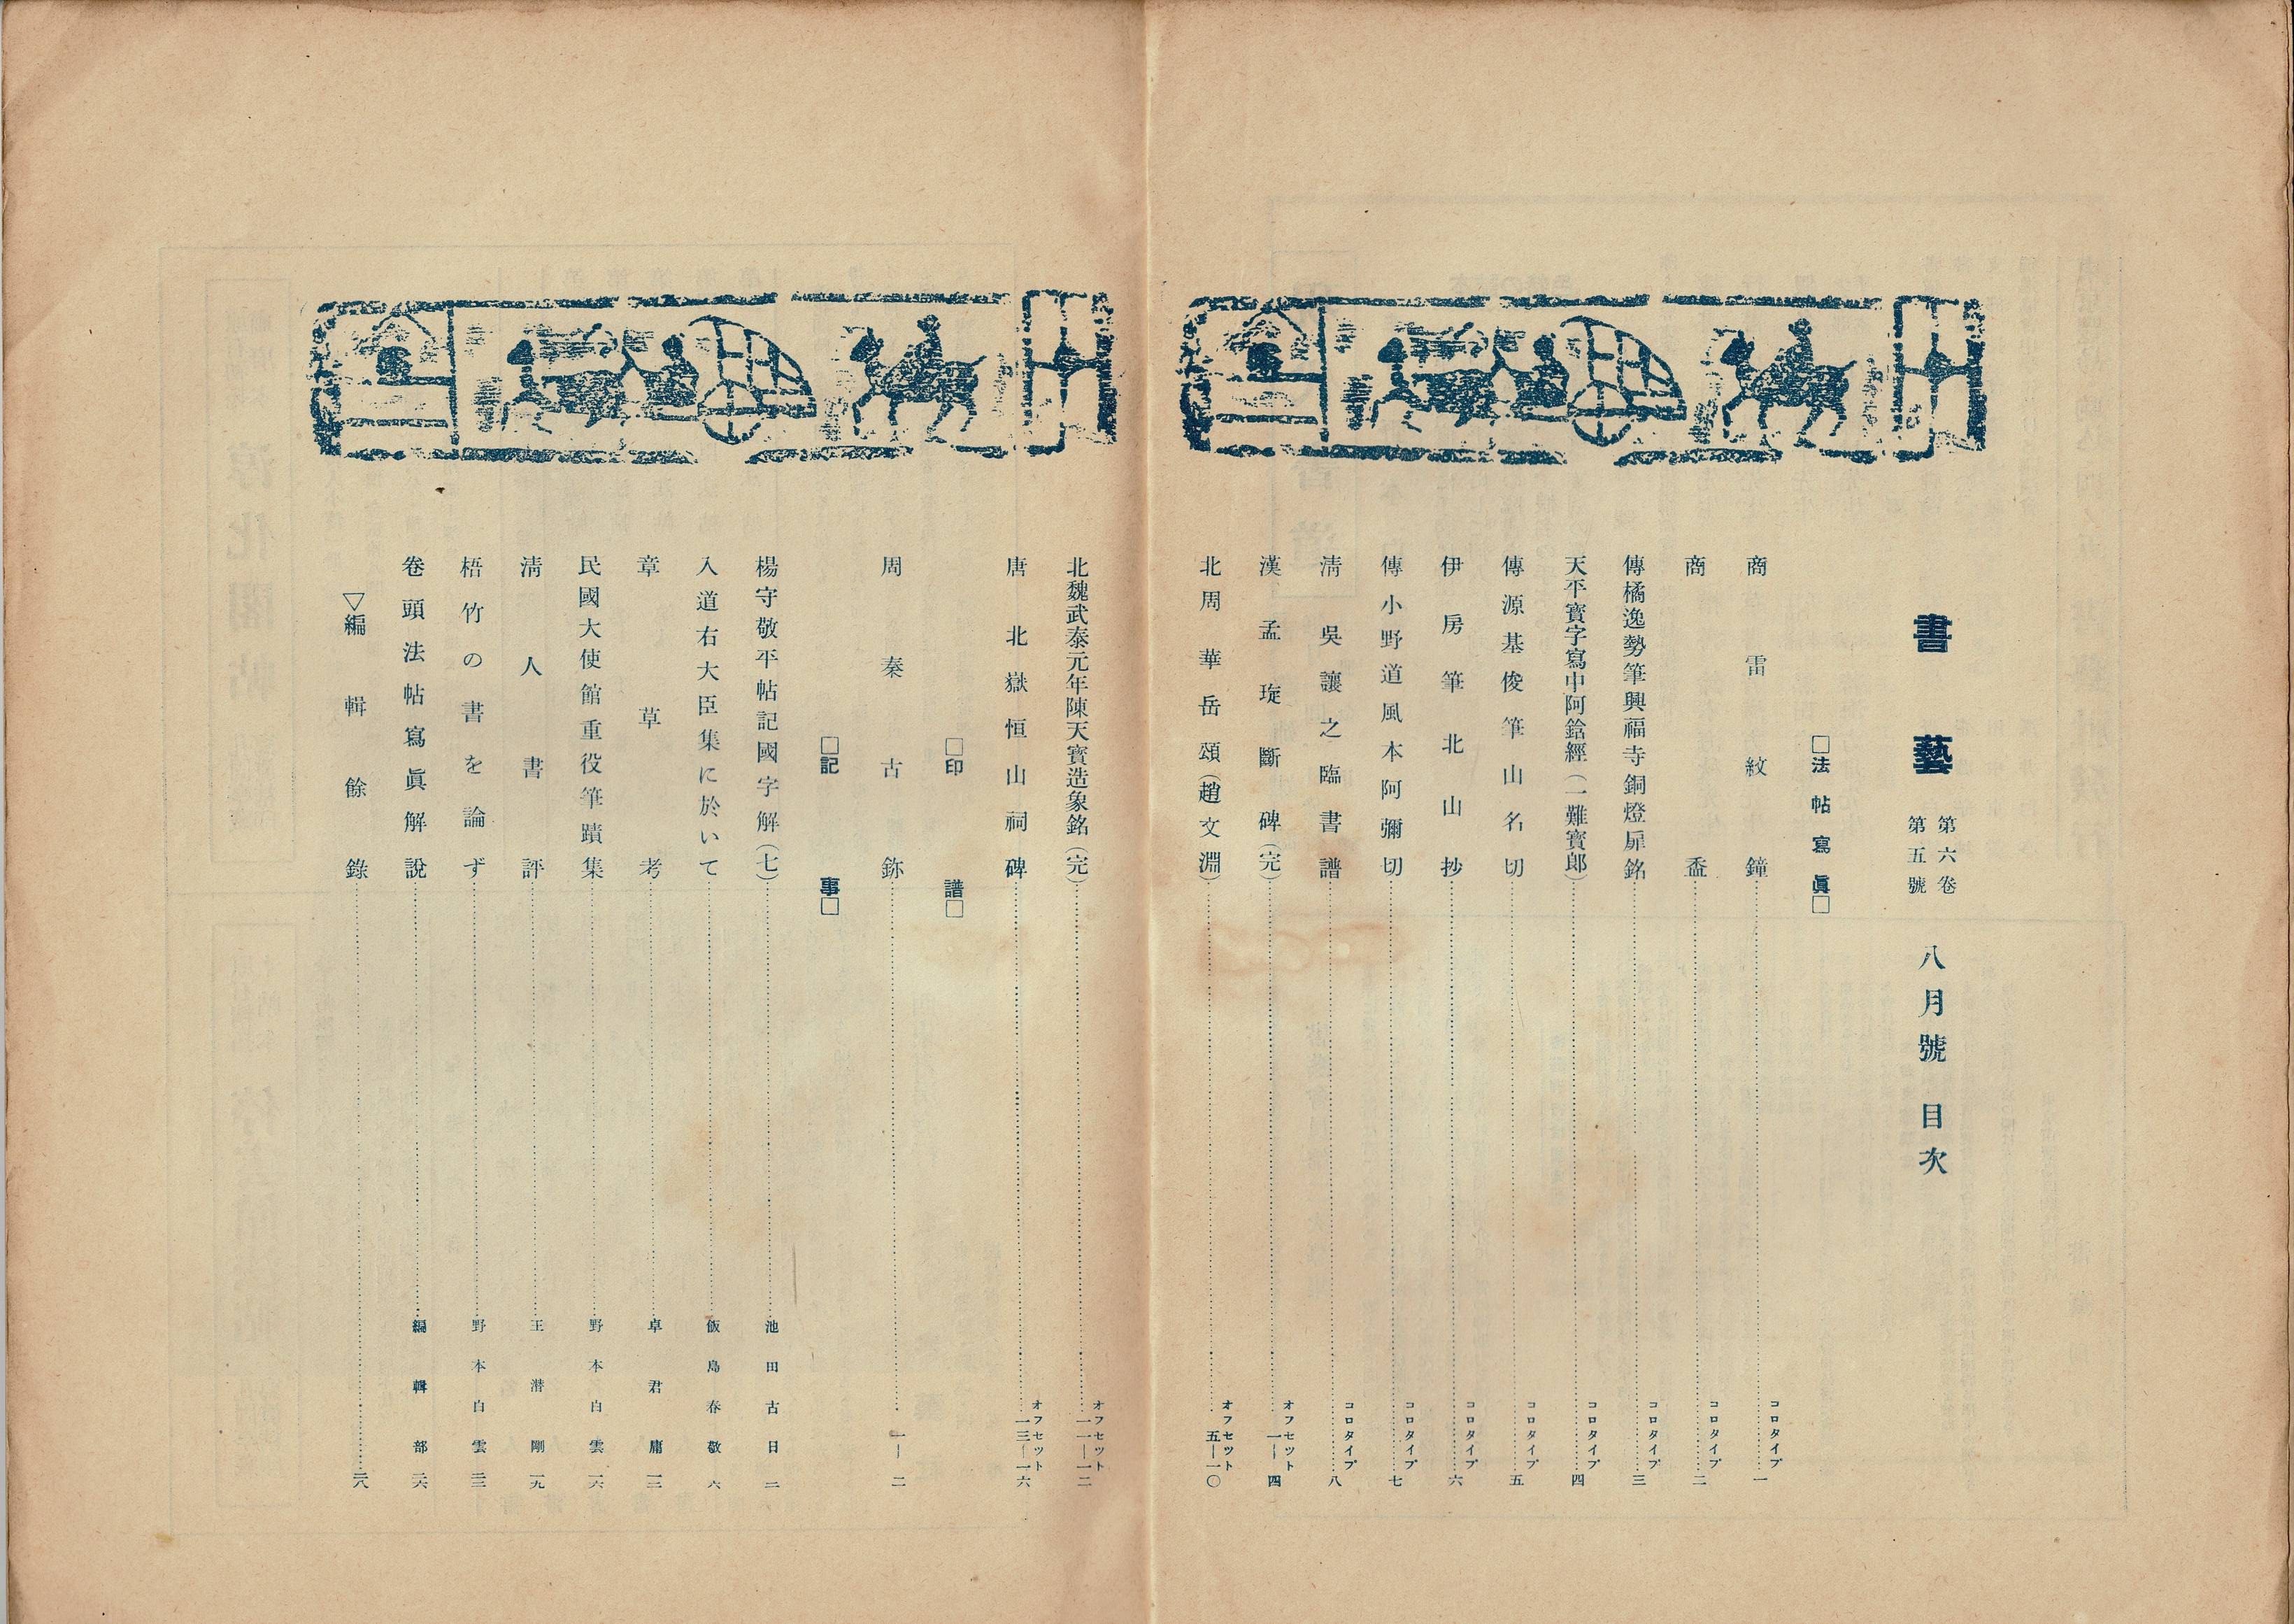 書藝 第六卷第五號 八月號 目次
□法帖寫眞□
商雷紋鐘……コロタイプ 一
商盉……コロタイプ 二
傳橘逸勢筆興福寺銅燈扉銘……コロタイプ 三
天平寶字寫中阿鋡經(一難寶郎)……コロタイプ 四
傳源基俊筆山名切……コロタイプ 五
伊房筆北山抄……コロタイプ 六
傳小野道風本阿彌切……コロタイプ 七
淸吳讓之臨書譜……コロタイプ 八
漢孟琁斷碑(完)……オフセット 一—四
北周華岳頌(趙文淵)……オフセット 五—一〇
北魏武泰元年陳天寶造象銘(完)……オフセット 一一—一二
唐北嶽恒山祠碑……オフセット 一三—一六
□印譜□
周秦古鉨……一—二
□記事□
楊守敬平帖記國字解(七)……池田古日 二
入道右大臣集に於いて……飯島春敬 六
章草考……卓君庸 一三
民國大使館重役筆蹟集……野本白雲 一六
淸人書評……王潜剛 一九
梧竹の書を論ず……野本白雲 二三
卷頭法帖寫眞解說……編輯部 二六
▽編輯餘錄……二八